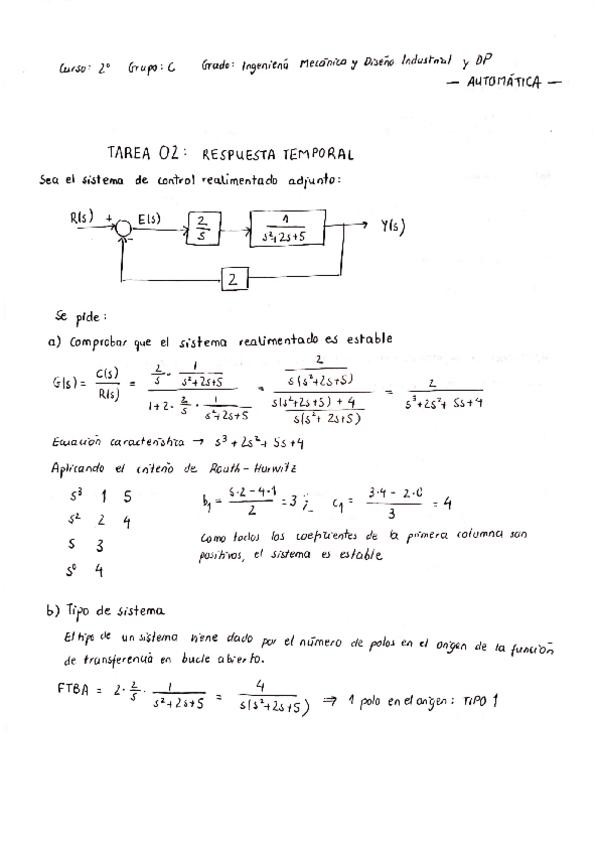 Curso: 2º Grupo: C Grado: Ingeniería Mecánica y Diseño Industrial y DP
— AUTOMÁTICA —
TAREA 02: RESPUESTA TEMPORAL
Sea el sistema de control realimentado adjunto:
R(s) + E(s) 2/s 1/(s²+2s+5) Y(s)
-
2
Se pide:
a) Comprobar que el sistema realimentado es estable
G(s) = C(s)/R(s) = (2/s · 1/(s²+2s+5))/(1+2·2/s·1/(s²+2s+5)) = (2/(s(s²+2s+5)))/((s(s²+2s+5)+4)/(s(s²+2s+5))) = 2/(s³+2s²+5s+4)
Ecuación característica → s³+2s²+5s+4
Aplicando el criterio de Routh-Hurwitz
s³ 1 5 b₁ = (5·2-4·1)/2 = 3 ; c₁ = (3·4-2·0)/3 = 4
s² 2 4
s 3 Como todos los coeficientes de la primera columna son
s⁰ 4 positivos, el sistema es estable
b) Tipo de sistema
El tipo de un sistema viene dado por el número de polos en el origen de la función
de transferencia en bucle abierto.
FTBA = 2·2/s·1/(s²+2s+5) = 4/(s(s²+2s+5)) ⇒ 1 polo en el origen: TIPO 1